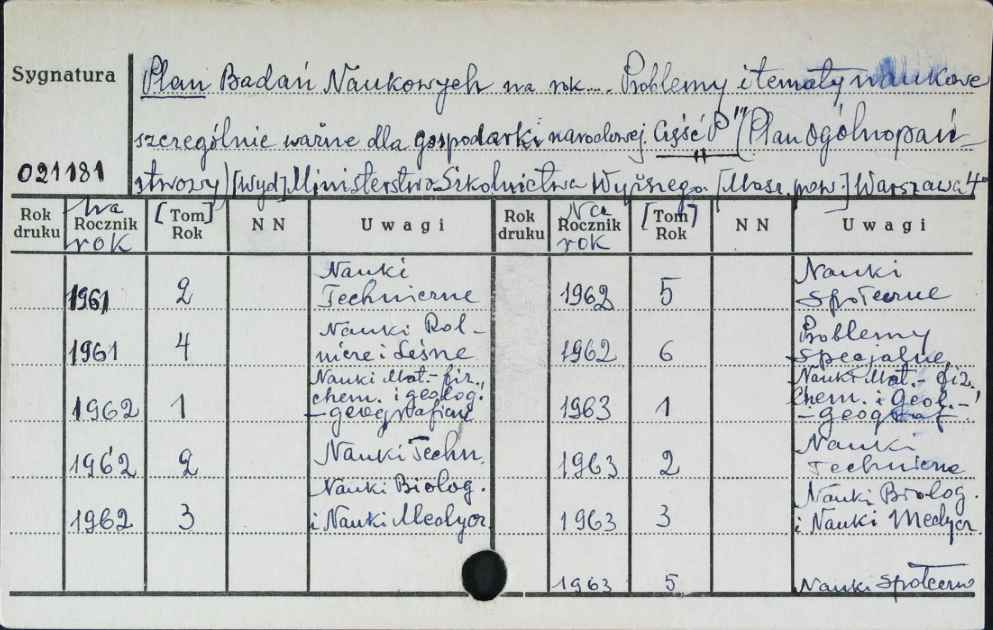 Sygnatura
Plan Badań Naukowych na rok... Problemy i tematy naukowe
szczególnie ważne dla gospodarki narodowej. Część P" (Plan Ogólnopań-
021181
stwowy) [Wyd] Ministerstwo Szkolnictwa Wyższego. [Masz. pow.] Warszawa 4°
Rok druku Na Rocznik rok [Tom] Rok NN Uwagi Rok druku Na Rocznik rok [Tom] Rok NN Uwagi
1961 2 Nauki Techniczne
1961 4 Nauki Rol-
nicze i Leśne
1962 1 Nauki Mat.-fiz.,
chem. i geolog.
-geograficzne
1962 2 Nauki Techn.
1962 3 Nauki Biolog.
i Nauki Medycz.
1962 5 Nauki
Społeczne
1962 6 Problemy
Specjalne
1963 1 Nauki Mat.-fiz.
chem. i Geol.-
-geograf.
1963 2 Nauki
Techniczne
1963 3 Nauki Biolog.
i Nauki Medycz.
1963 5 Nauki Społeczn